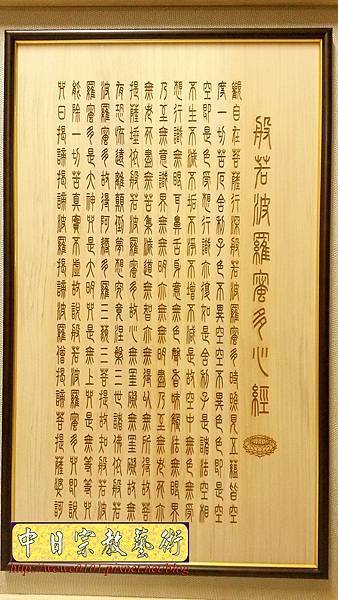 般若波羅蜜多心經
觀自在菩薩行深般若波羅蜜多時照見五蘊皆空
度一切苦厄舍利子色不異空空不異色色即是空
空即是色受想行識亦復如是舍利子是諸法空相
不生不滅不垢不淨不增不減是故空中無色無受
想行識無眼耳鼻舌身意無色聲香味觸法無眼界
乃至無意識界無無明亦無無明盡乃至無老死亦
無老死盡無苦集滅道無智亦無得以無所得故菩
提薩埵依般若波羅蜜多故心無罣礙無罣礙故無
有恐怖遠離顛倒夢想究竟涅槃三世諸佛依般若
波羅蜜多故得阿耨多羅三藐三菩提故知般若波
羅蜜多是大神咒是大明咒是無上咒是無等等咒
能除一切苦真實不虛故說般若波羅蜜多咒即說
咒曰揭諦揭諦波羅揭諦波羅僧揭諦菩提薩婆訶
中日宗教藝術
http://wewe0101.pixnet.net/blog